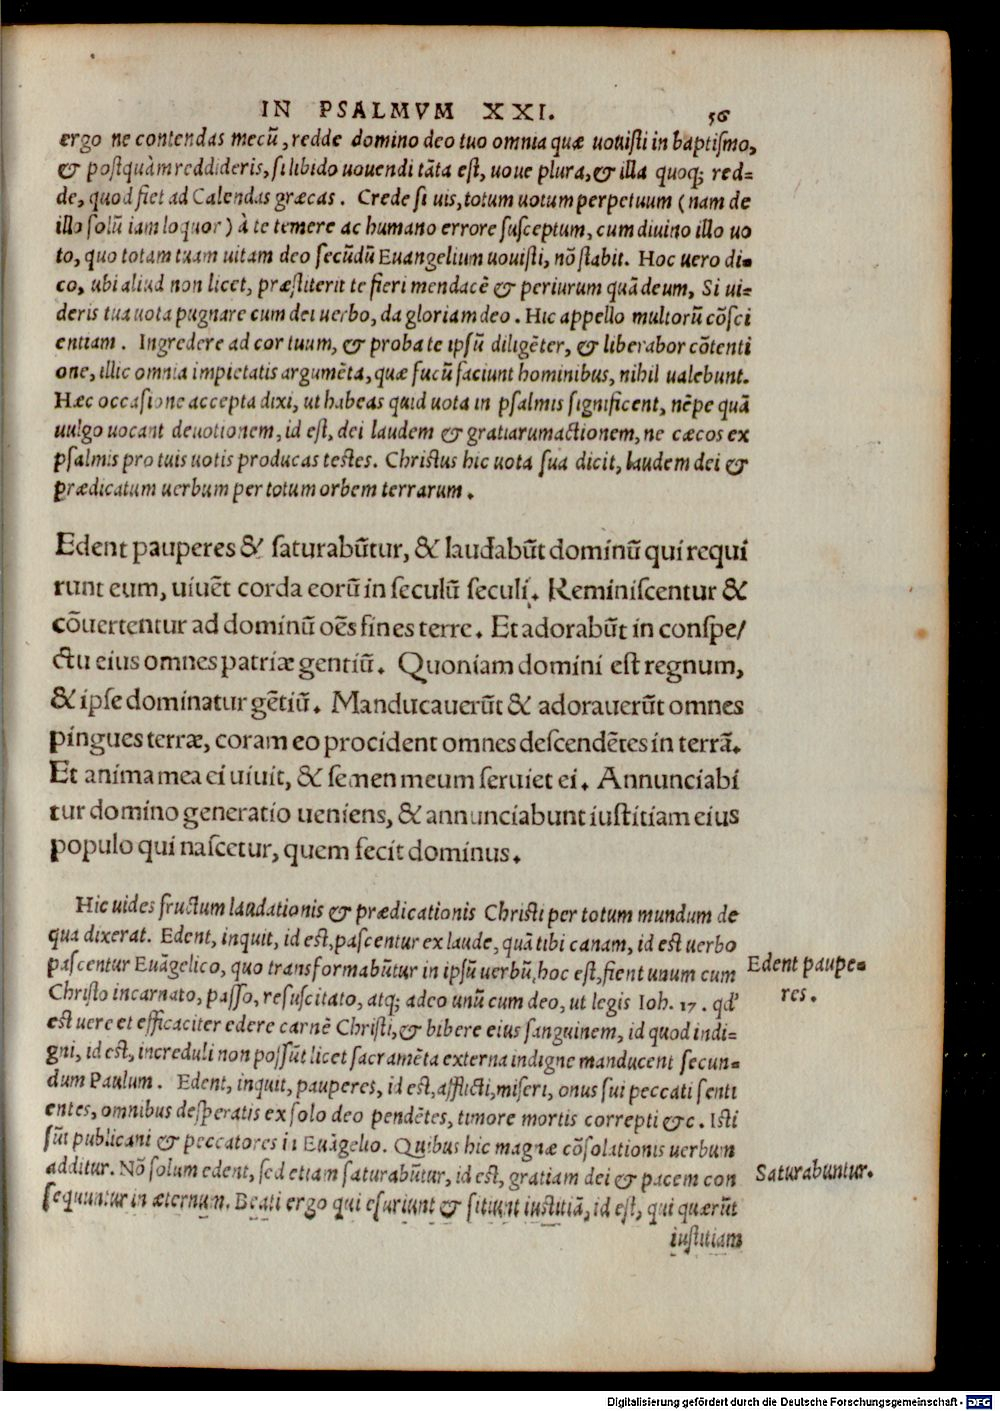 IN PSALMVM XXI. 56
ergo ne contendas mecũ, redde domino deo tuo omnia quæ uouisti in baptismo,
& postquàm reddideris, si libido uouendi tãta est, uoue plura, & illa quoq; red=
de, quod fiet ad Calendas græcas. Crede si uis, totum uotum perpetuum (nam de
illo solũ iam loquor) à te temere ac humano errore susceptum, cum diuino illo uo
to, quo totam tuam uitam deo secũdũ Euangelium uouisti, nõ stabit. Hoc uero di=
co, ubi aliud non licet, præstiterit te fieri mendacẽ & periurum quã deum, Si ui=
deris tua uota pugnare cum dei uerbo, da gloriam deo. Hic appello multorũ cõsci
entiam. Ingredere ad cor tuum, & proba te ipsũ diligẽter, & liberabor cõtenti
one, illic omnia impietatis argumẽta, quæ fucũ faciunt hominibus, nihil ualebunt.
Hæc occasione accepta dixi, ut habeas quid uota in psalmis significent, nẽpe quã
uulgo uocant deuotionem, id est, dei laudem & gratiarumactionem, ne cæcos ex
psalmis pro tuis uotis producas testes. Christus hic uota sua dicit, laudem dei &
prædicatum uerbum per totum orbem terrarum.
Edent pauperes & saturabũtur, & laudabũt dominũ qui requi
runt eum, uiuẽt corda eorũ in seculũ seculi. Reminiscentur &
cõuertentur ad dominũ oẽs fines terre. Et adorabũt in conspe/
ctu eius omnes patriæ gentiũ. Quoniam domini est regnum,
& ipse dominatur gẽtiũ. Manducauerũt & adorauerũt omnes
pingues terræ, coram eo procident omnes descendẽtes in terrã.
Et anima mea ei uiuit, & semen meum seruiet ei. Annunciabi
tur domino generatio ueniens, & annunciabunt iustitiam eius
populo qui nascetur, quem fecit dominus.
Hic uides fructum laudationis & prædicationis Christi per totum mundum de
qua dixerat. Edent, inquit, id est, pascentur ex laude, quã tibi canam, id est uerbo
pascentur Euãgelico, quo transformabũtur in ipsũ uerbũ, hoc est, fient unum cum
Christo incarnato, passo, resuscitato, atq; adeo unũ cum deo, ut legis Ioh. 17. qđ
est uere et efficaciter edere carnẽ Christi, & bibere eius sanguinem, id quod indi=
gni, id est, increduli non possũt licet sacramẽta externa indigne manducent secun=
dum Paulum. Edent, inquit, pauperes, id est, afflicti, miseri, onus sui peccati senti
entes, omnibus desperatis ex solo deo pendẽtes, timore mortis correpti &c. Isti
sũt publicani & peccatores in Euãgelio. Quibus hic magnæ cõsolationis uerbum
additur. Nõ solum edent, sed etiam saturabũtur, id est, gratiam dei & pacem con
sequuntur in æternum. Beati ergo qui esuriunt & sitiunt iustitiã, id est, qui quærũt
iustitiam
Edent paupe=
res.
Saturabuntur.
Digitalisierung gefördert durch die Deutsche Forschungsgemeinschaft - DFG